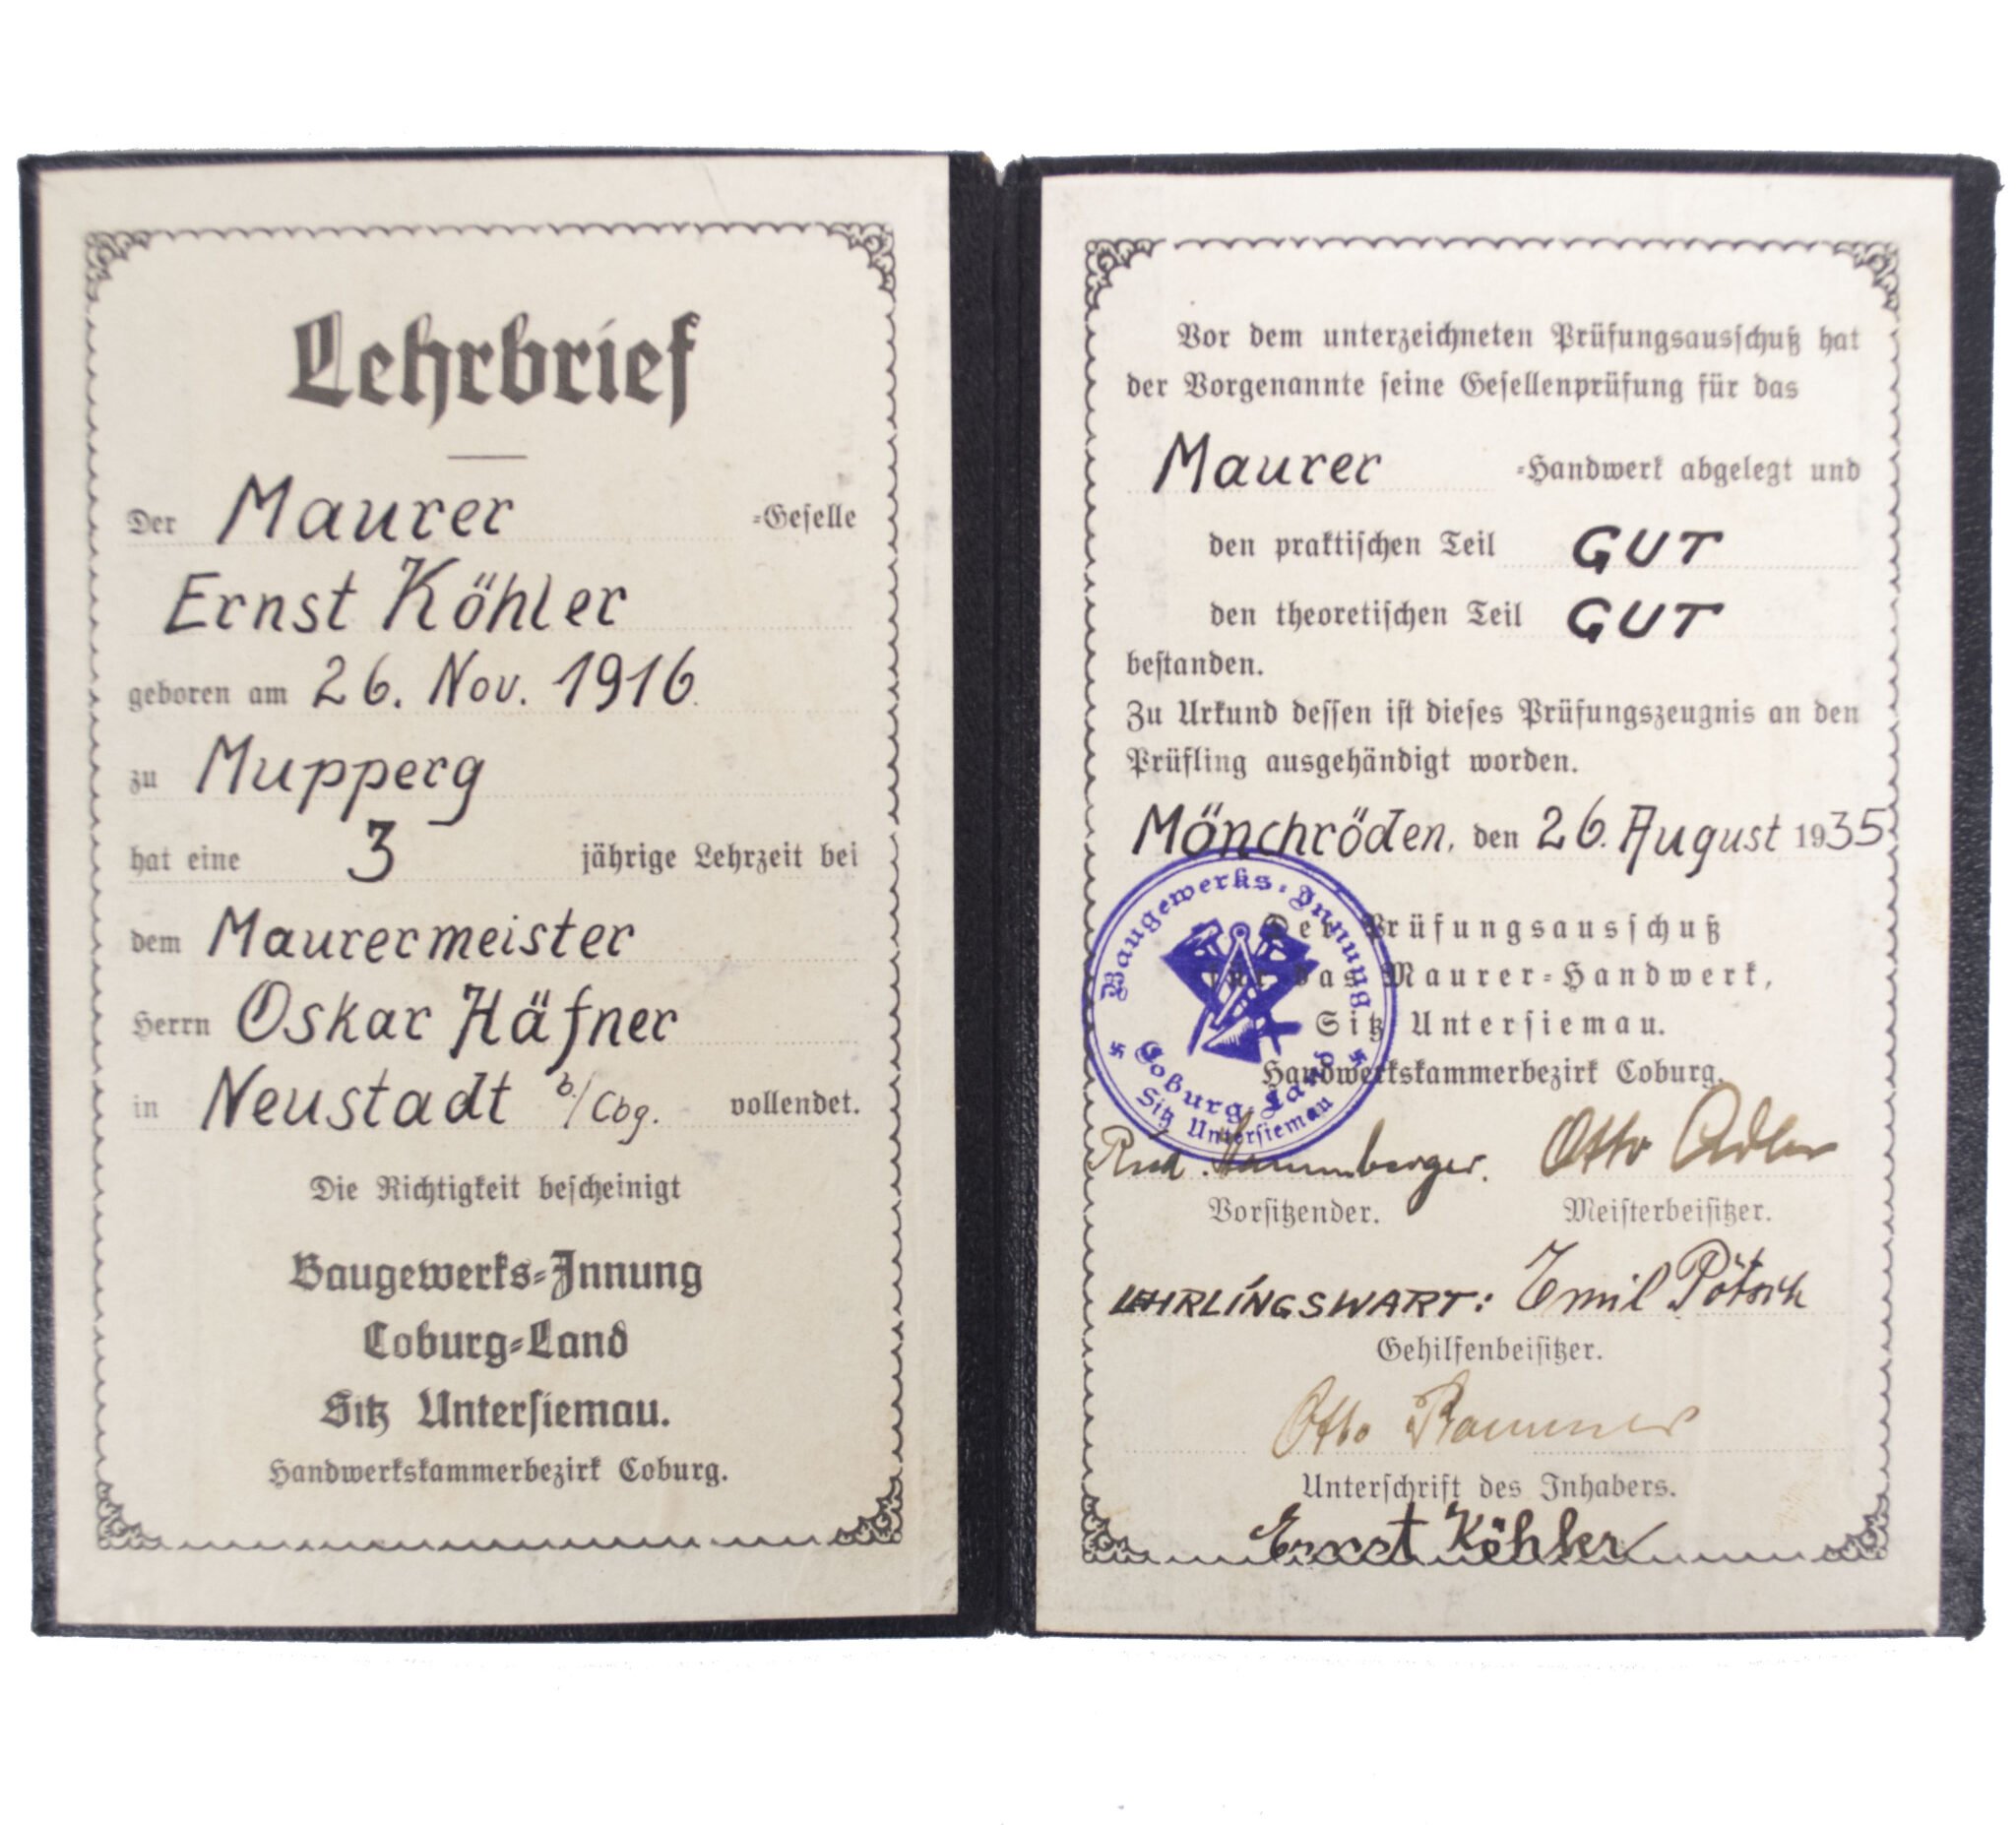 Lehrbrief
Der Maurer =Geselle
Ernst Köhler
geboren am 26. Nov. 1916.
zu Mupperg
hat eine 3 jährige Lehrzeit bei
dem Maurermeister
Herrn Oskar Häfner
in Neustadt b/Cbg. vollendet.
Die Richtigkeit bescheinigt
Baugewerks=Innung
Coburg=Land
Sitz Untersiemau.
Handwerkskammerbezirk Coburg.
Vor dem unterzeichneten Prüfungsausschuß hat
der Vorgenannte seine Gesellenprüfung für das
Maurer =Handwerk abgelegt und
den praktischen Teil GUT
den theoretischen Teil GUT
bestanden.
Zu Urkund dessen ist dieses Prüfungszeugnis an den
Prüfling ausgehändigt worden.
Mönchröden, den 26. August 1935
Baugewerks=Innung
Coburg=Land
Sitz Untersiemau
Der Prüfungsausschuß
für das Maurer=Handwerk,
Sitz Untersiemau.
Handwerkskammerbezirk Coburg.
Otto Adler
Vorsitzender. Meisterbeisitzer.
LEHRLINGSWART: Emil
Gehilfenbeisitzer.
Otto
Unterschrift des Inhabers.
Ernst Köhler